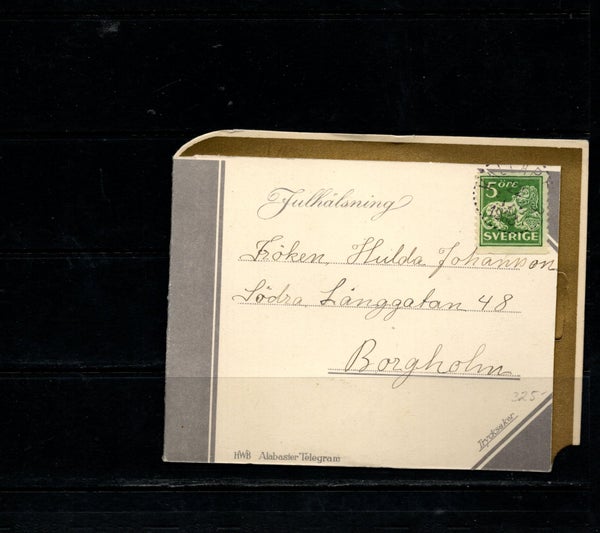 Julhälsning
5 öre
SVERIGE
Fröken, Hulda Johansson
Södra Långgatan 48
Borgholm
325-
Trycksaker
HWB Alabaster Telegram